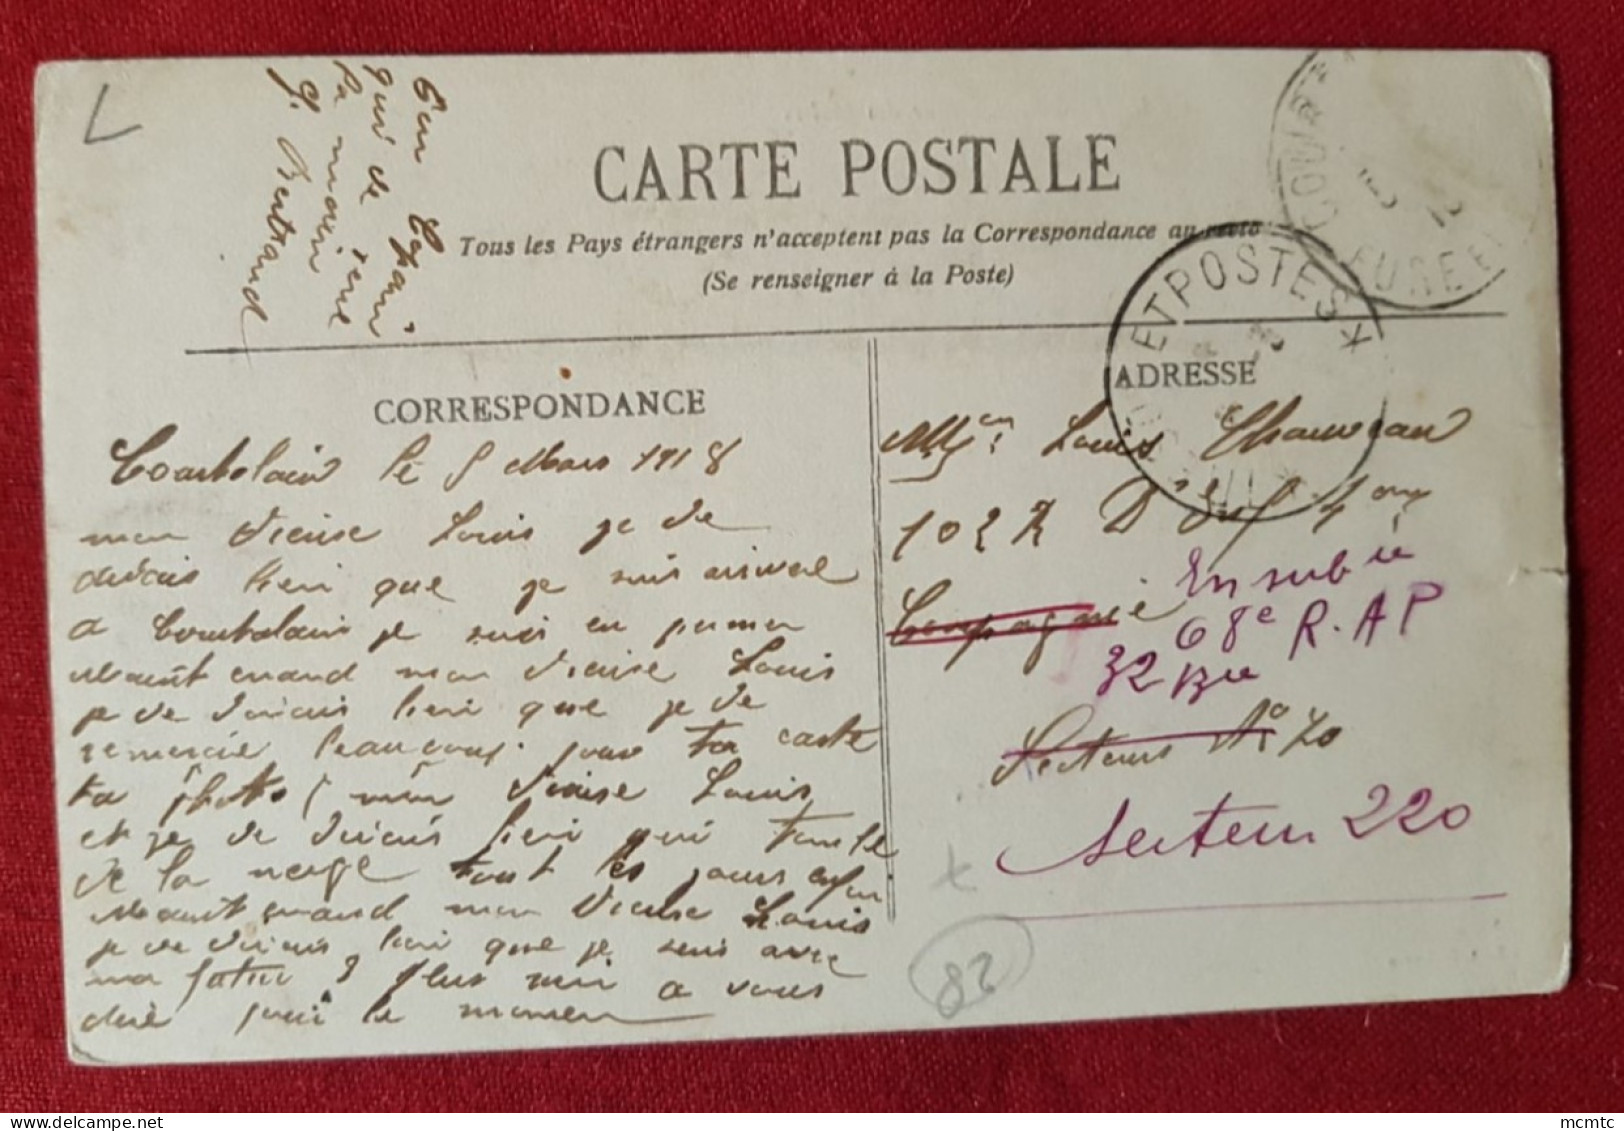 Ton Copain
qui te
la main
G. Bertrand
CARTE POSTALE
Tous les Pays étrangers n'acceptent pas la Correspondance au recto
(Se renseigner à la Poste)
ET POSTES
CORRESPONDANCE
ADRESSE
Courtalain le 5 Mars 1918
mon Vieuse Louis je te
dirais bien que je suis arrivée
a Courtalain je suis en permon
mon Vieuse Louis
je te dirais bien que je te
remercie beaucoup pour ta carte
ta photo mon Vieuse Louis
et je te dirais bien qui tombe
de la neige tout les jours enfin
mon Vieuse Louis
je te dirais bien que je suis avec
ma futur plus rien a vous
dire pour le moment
Louis Chauveau
102 R D'Inf 4em
Compagnie
En subsie
68e R.A.P
32 Bie
Secteur No 70
Secteur 220
82
mcmtc